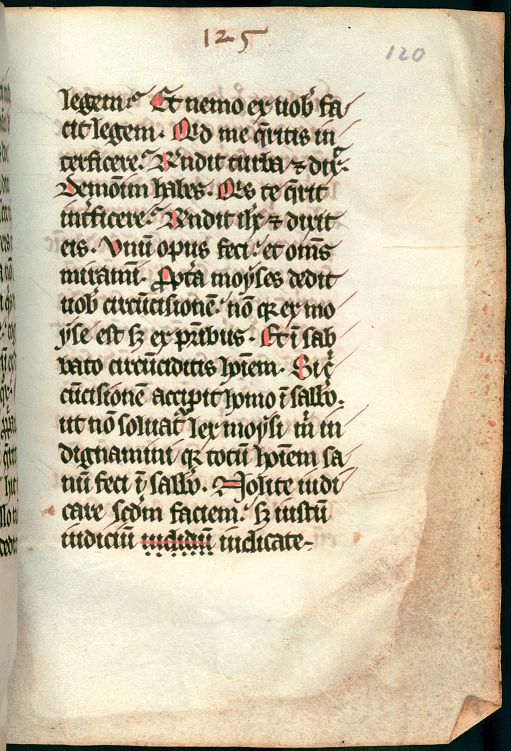 125
120
legem? Et nemo ex uob̄ fa
cit legem. Qͥd me q̄ritis in
terficere? R̄ndit turba ⁊ dix̄.
Demoīm habes. Qͥs te q̄rit
int̄ficere? R̄ndit ih̄c ⁊ dixit
eis. Vnū opus feci: et om̄s
miramī. Ꝓpt̄a moyses dedit
uob̄ circūcisionē. nō qꝛ ex mo
yse est sꝫ ex pr̄ibus. Et ī sab
bato circūciditis hoīem. Si cͥr
cūcisionē accipit homo ī sabb̄o.
ut nō soluatᷣ lex moysi m̄ in
dignamini qꝛ totū hoīem sa
nū feci ī sabb̄o. Nolite iudi
care scd̄m faciem: sꝫ iustū
iudiciū iudiciū iudicate-